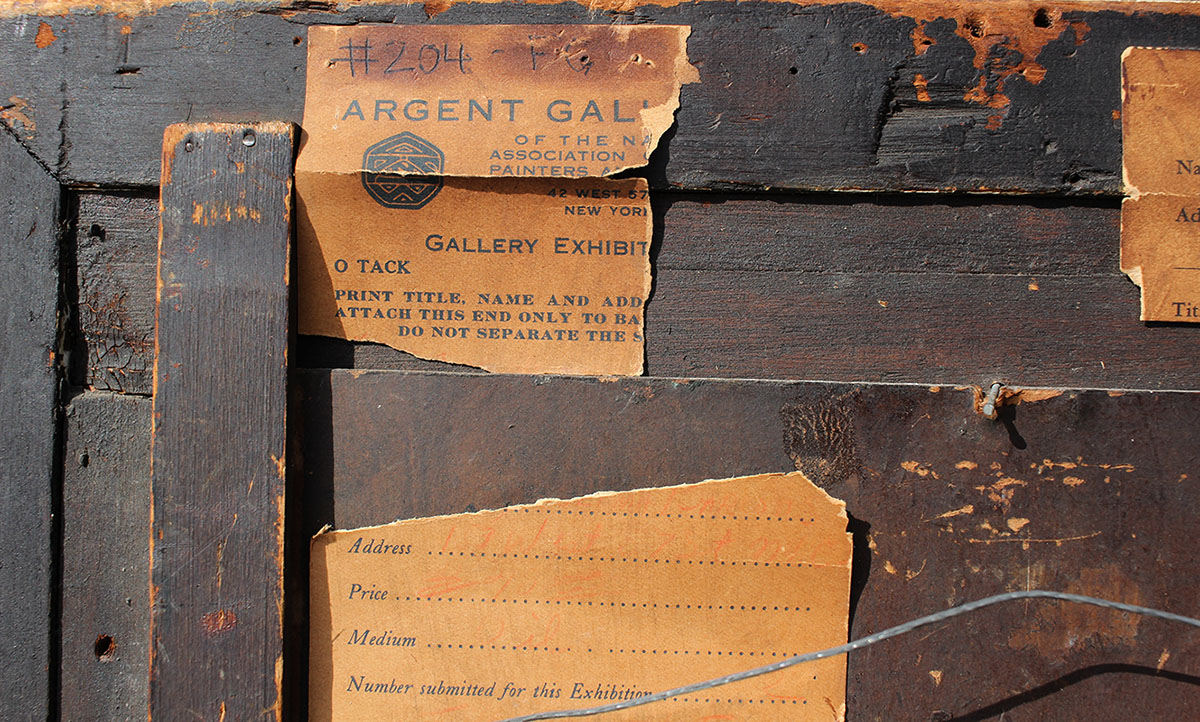 #204 -
ARGENT GAL
OF THE NA
ASSOCIATION
PAINTERS A
42 WEST 57
NEW YOR
GALLERY EXHIBIT
O TACK
PRINT TITLE, NAME AND ADD
ATTACH THIS END ONLY TO BA
DO NOT SEPARATE THE S
Na
Ad
Titl
Address
Price
Medium
Number submitted for this Exhibition